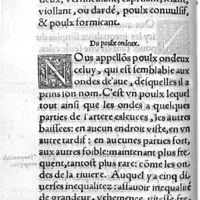 deux, vermiculant, caprisant, miant,
violant, ou dardé, poulx conuulsif,
& poulx formicant.
Du poulx ondeux.
NOus appellõs poulx ondeux
celuy, qui est semblable aux
ondes d'aue, desquelles il a
prins son nom. C'est vn poulx lequel
tout ainsi que les ondes a quelques
parties de l'artere esleuees, les autres
baissées: en aucun endroit viste, en vn
autre tardif: en aucunes parties fort,
aux autres foible: maintenant plus fre
quent, tantost plus rare: côme les on-
des de la riuiere. Auquel y a cinq di-
uerses inequalitez: assauoir inequalité
de grandeur, vehemence, vitesse fre